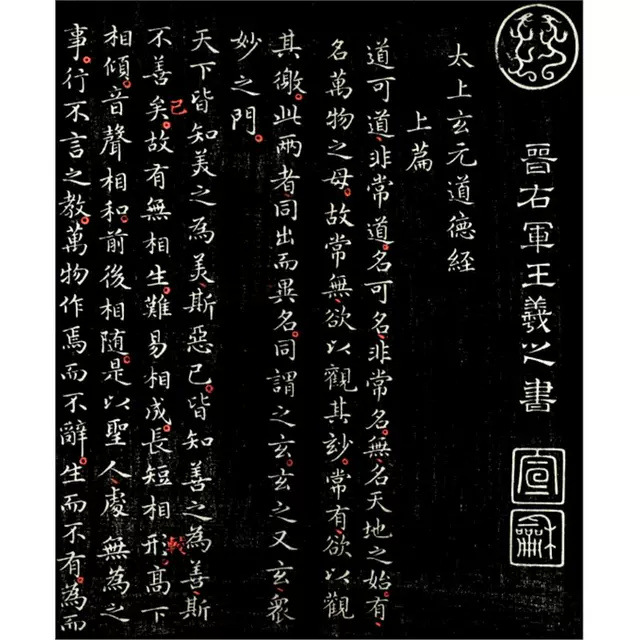 晉右軍王羲之書
宣
龢
太上玄元道德經
上篇
道可道、非常道。名可名、非常名。無、名天地之始。有、
名萬物之母。故常無、欲以觀其妙。常有、欲以觀
其徼。此兩者、同出而異名。同謂之玄。玄之又玄、眾
妙之門。
天下皆知美之為美、斯惡已。皆知善之為善、斯
不善矣。已故有無相生。難易相成。長短相形。較高下
相傾。音聲相和。前後相隨。是以聖人、處無為之
事。行不言之教。萬物作焉而不辭。生而不有。為而